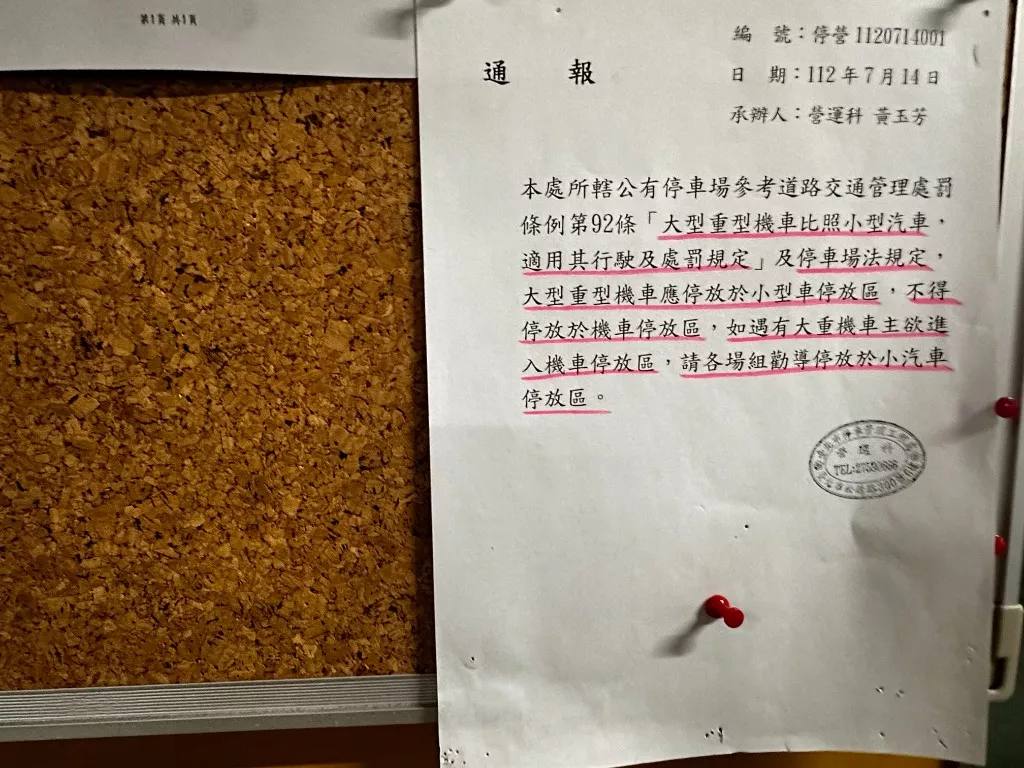 第1頁 共1頁
編 號：停營1120714001
通 報
日 期：112年7月14日
承辦人：營運科 黃玉芳
本處所轄公有停車場參考道路交通管理處罰
條例第92條「大型重型機車比照小型汽車，
適用其行駛及處罰規定」及停車場法規定，
大型重型機車應停放於小型車停放區，不得
停放於機車停放區，如遇有大重機車主欲進
入機車停放區，請各場組勸導停放於小汽車
停放區。
營運科